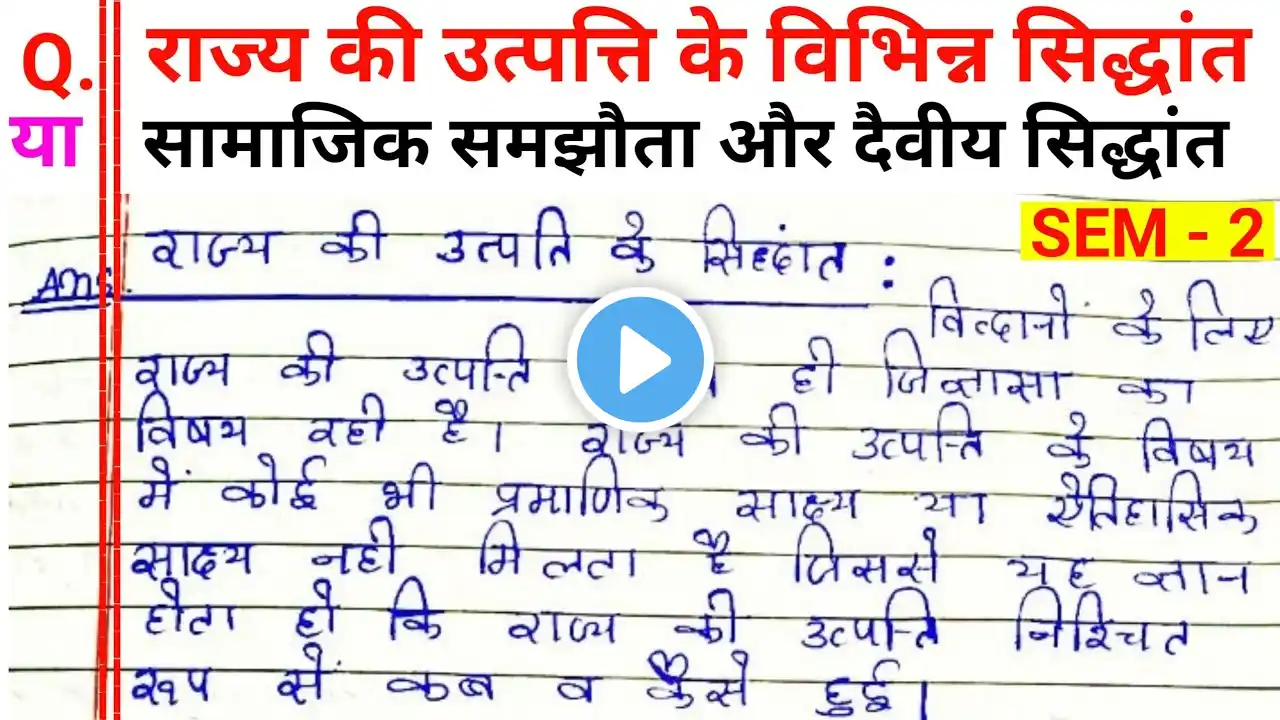 Q. राज्य की उत्पत्ति के विभिन्न सिद्धांत
या सामाजिक समझौता और दैवीय सिद्धांत
SEM - 2
राज्य की उत्पति के सिद्दांत :
Ans.
विव्दानों के लिए
राज्य की उत्पत्ति ही जिज्ञासा का
विषय रही है। राज्य की उत्पत्ति के विषय
में कोई भी प्रमाणिक साक्ष्य या ऐतिहासिक
साक्ष्य नही मिलता है जिससे यह ज्ञान
होता हो कि राज्य की उत्पत्ति निश्चित
रूप से कब व कैसे हुई।